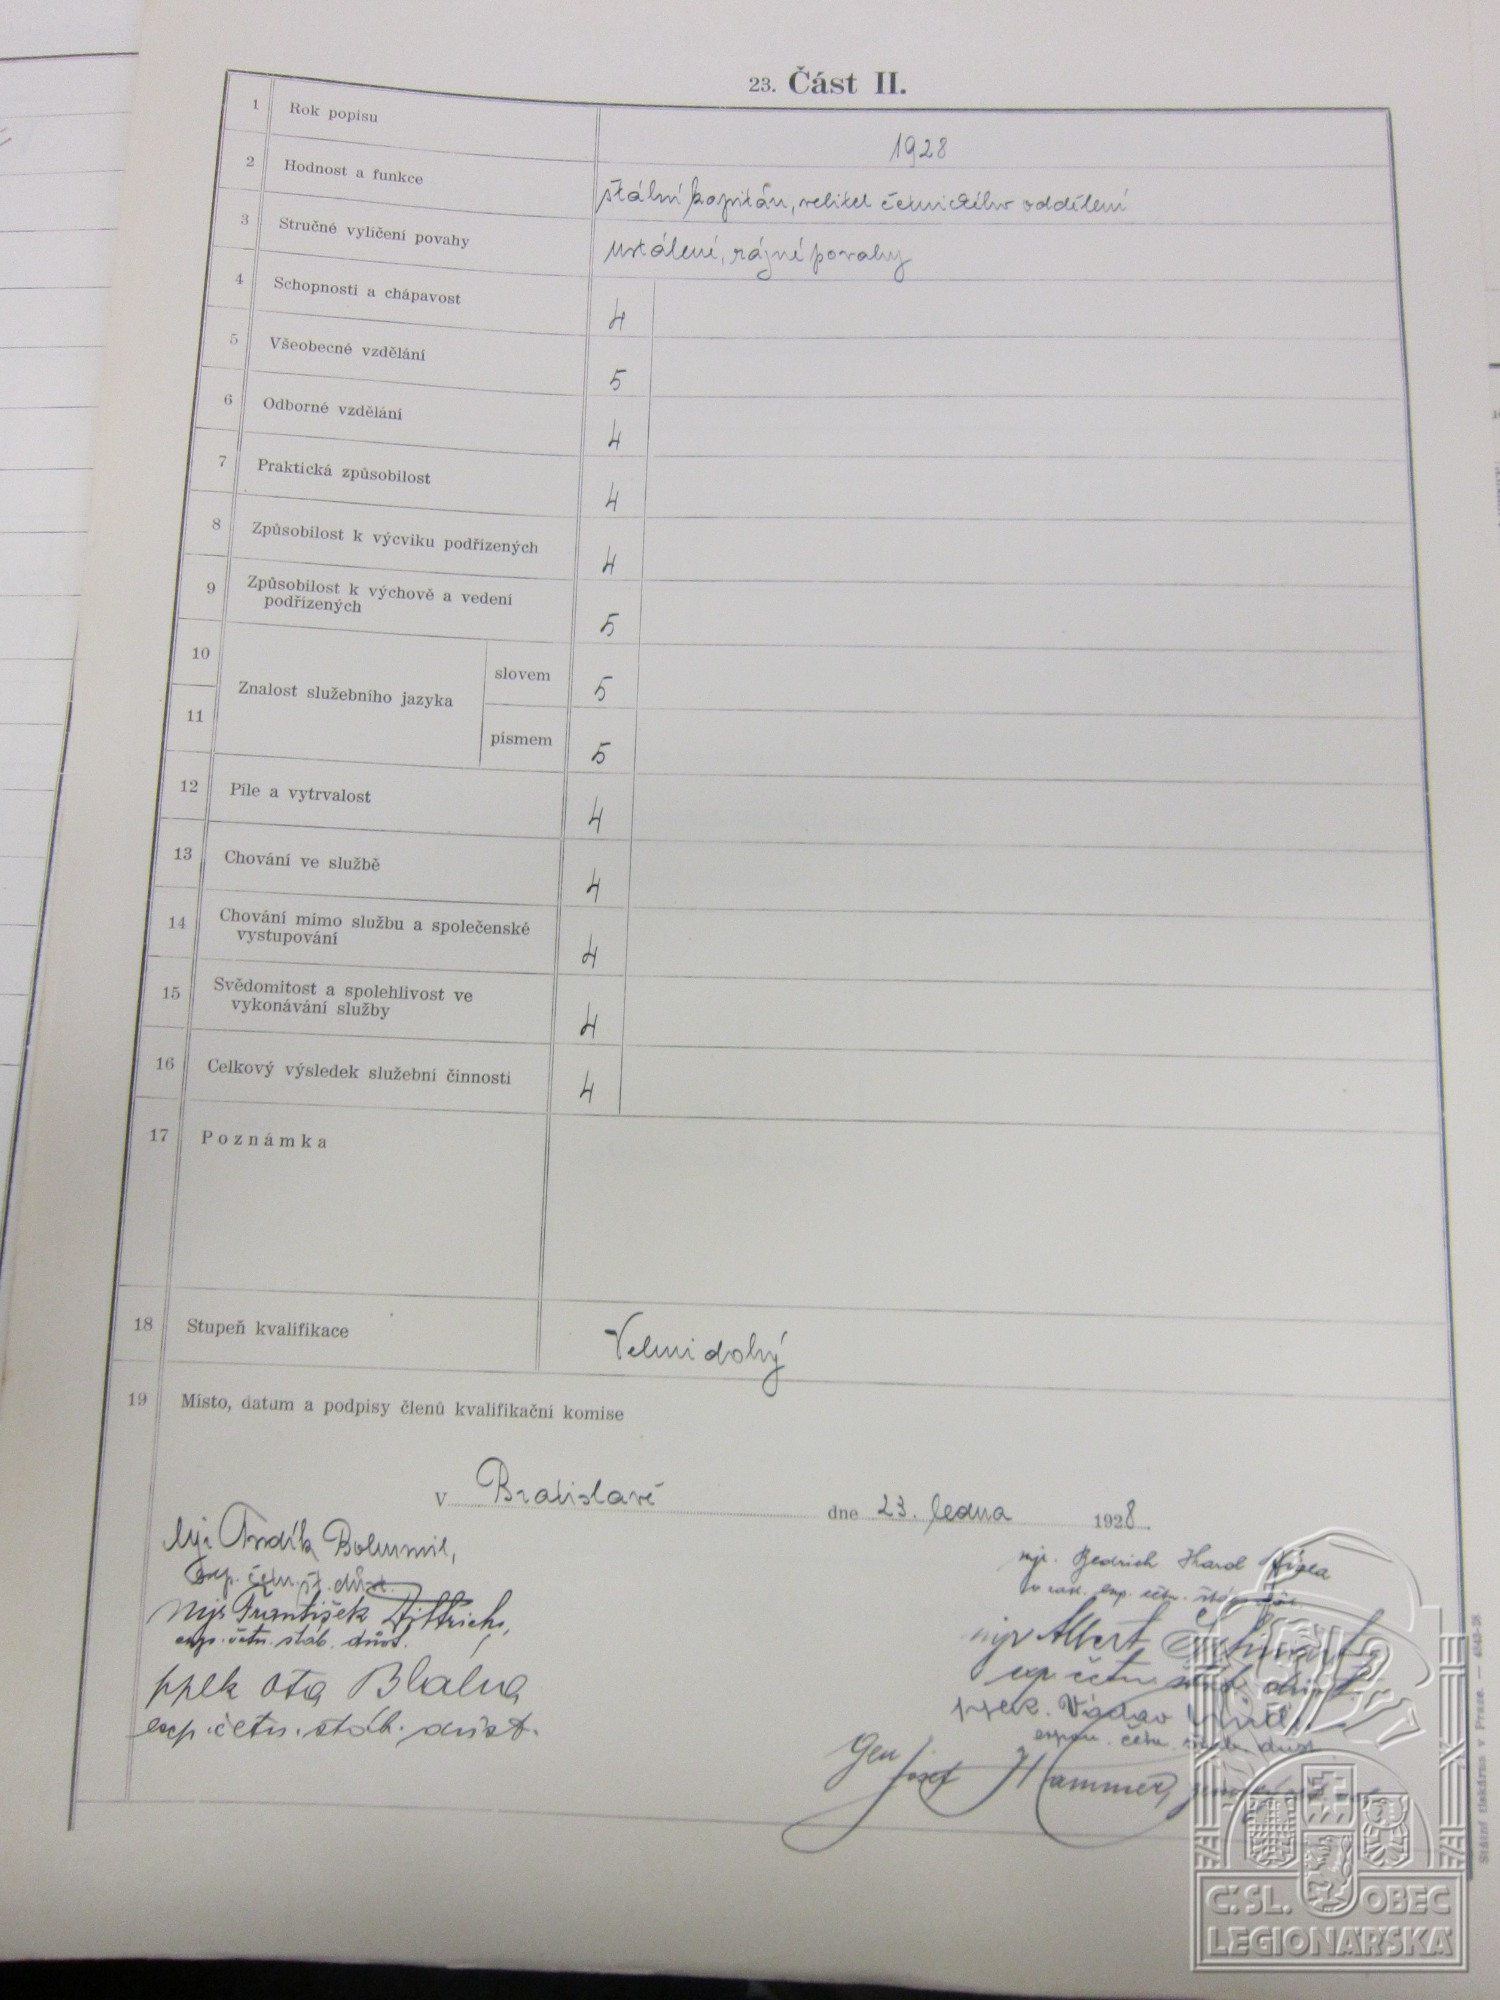 23. Část II.
1 Rok popisu 1928
2 Hodnost a funkce štábní kapitán, velitel četnického oddělení
3 Stručné vylíčení povahy ustálené, rázné povahy
4 Schopnosti a chápavost 4
5 Všeobecné vzdělání 5
6 Odborné vzdělání 4
7 Praktická způsobilost 4
8 Způsobilost k výcviku podřízených 4
9 Způsobilost k výchově a vedení
podřízených 5
10 Znalost služebního jazyka slovem 5
11 písmem 5
12 Píle a vytrvalost 4
13 Chování ve službě 4
14 Chování mimo službu a společenské
vystupování 4
15 Svědomitost a spolehlivost ve
vykonávání služby 4
16 Celkový výsledek služební činnosti 4
17 Poznámka
18 Stupeň kvalifikace Velmi dobrý
19 Místo, datum a podpisy členů kvalifikační komise
V Bratislavě dne 23. ledna 1928.
Bohumil,
exp. četn. št. důst.
Mjr František Dittrich,
exp. četn. stab. důst.
pplk Ota Blaha
exp. četn. stáb. důst.
mjr. Bedrich Karol
exp. četn.
mjr Albert
exp četn. důst.
pplk. Václav
četn. důst.
Gen Josef Hammer,
Státní tiskárna v Praze. —
Č.SL. OBEC
LEGIONÁŘSKÁ